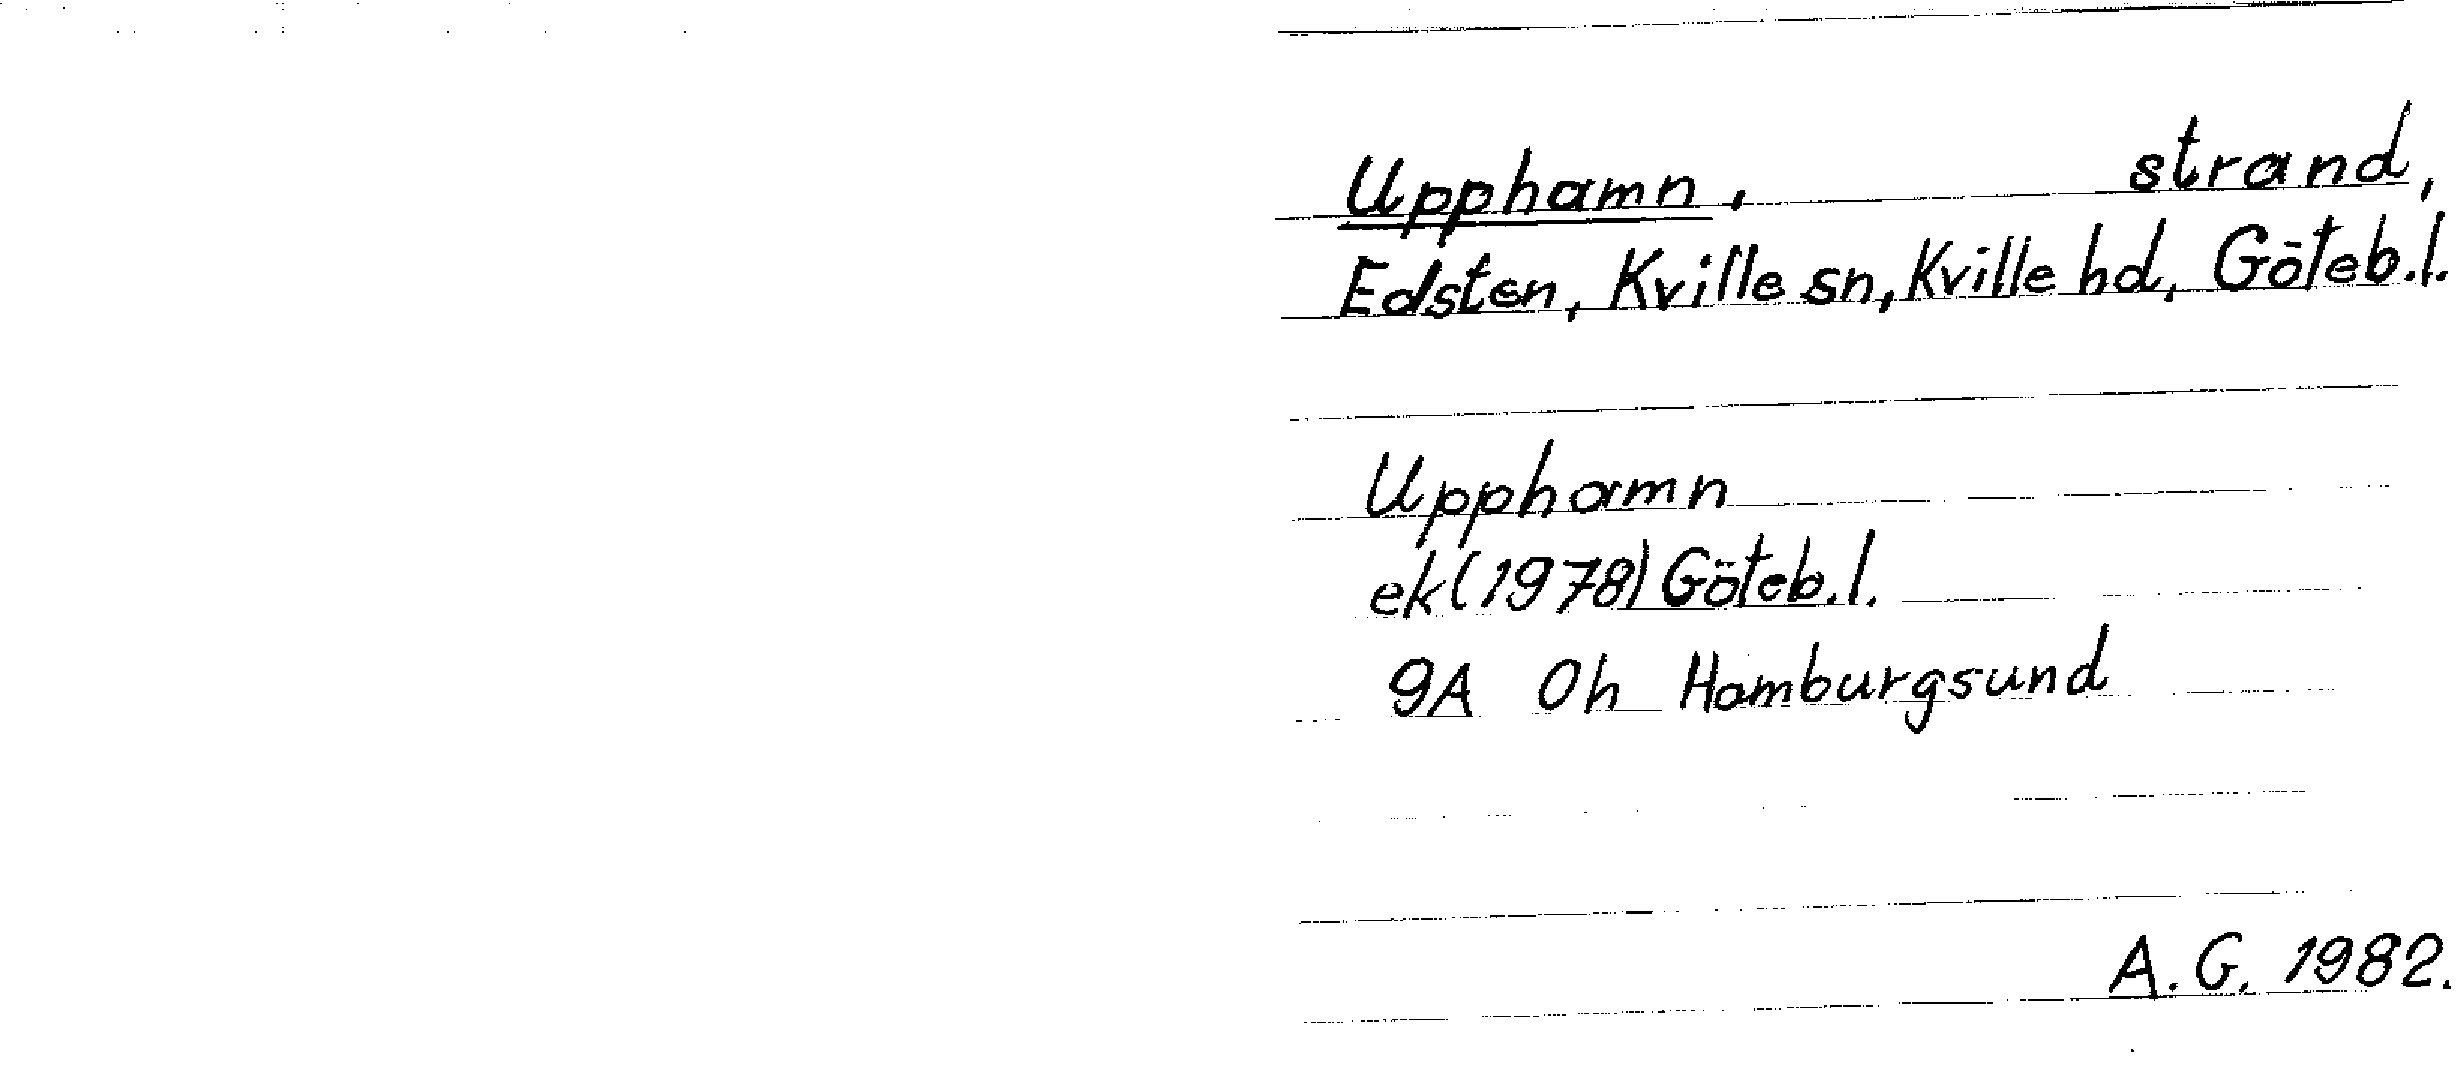 Upphamn, strand,
Edsten, Kville sn, Kville hd, Göteb.l.
Upphamn
ek (1978) Göteb.l.
9A 0h Hamburgsund
A.G. 1982.